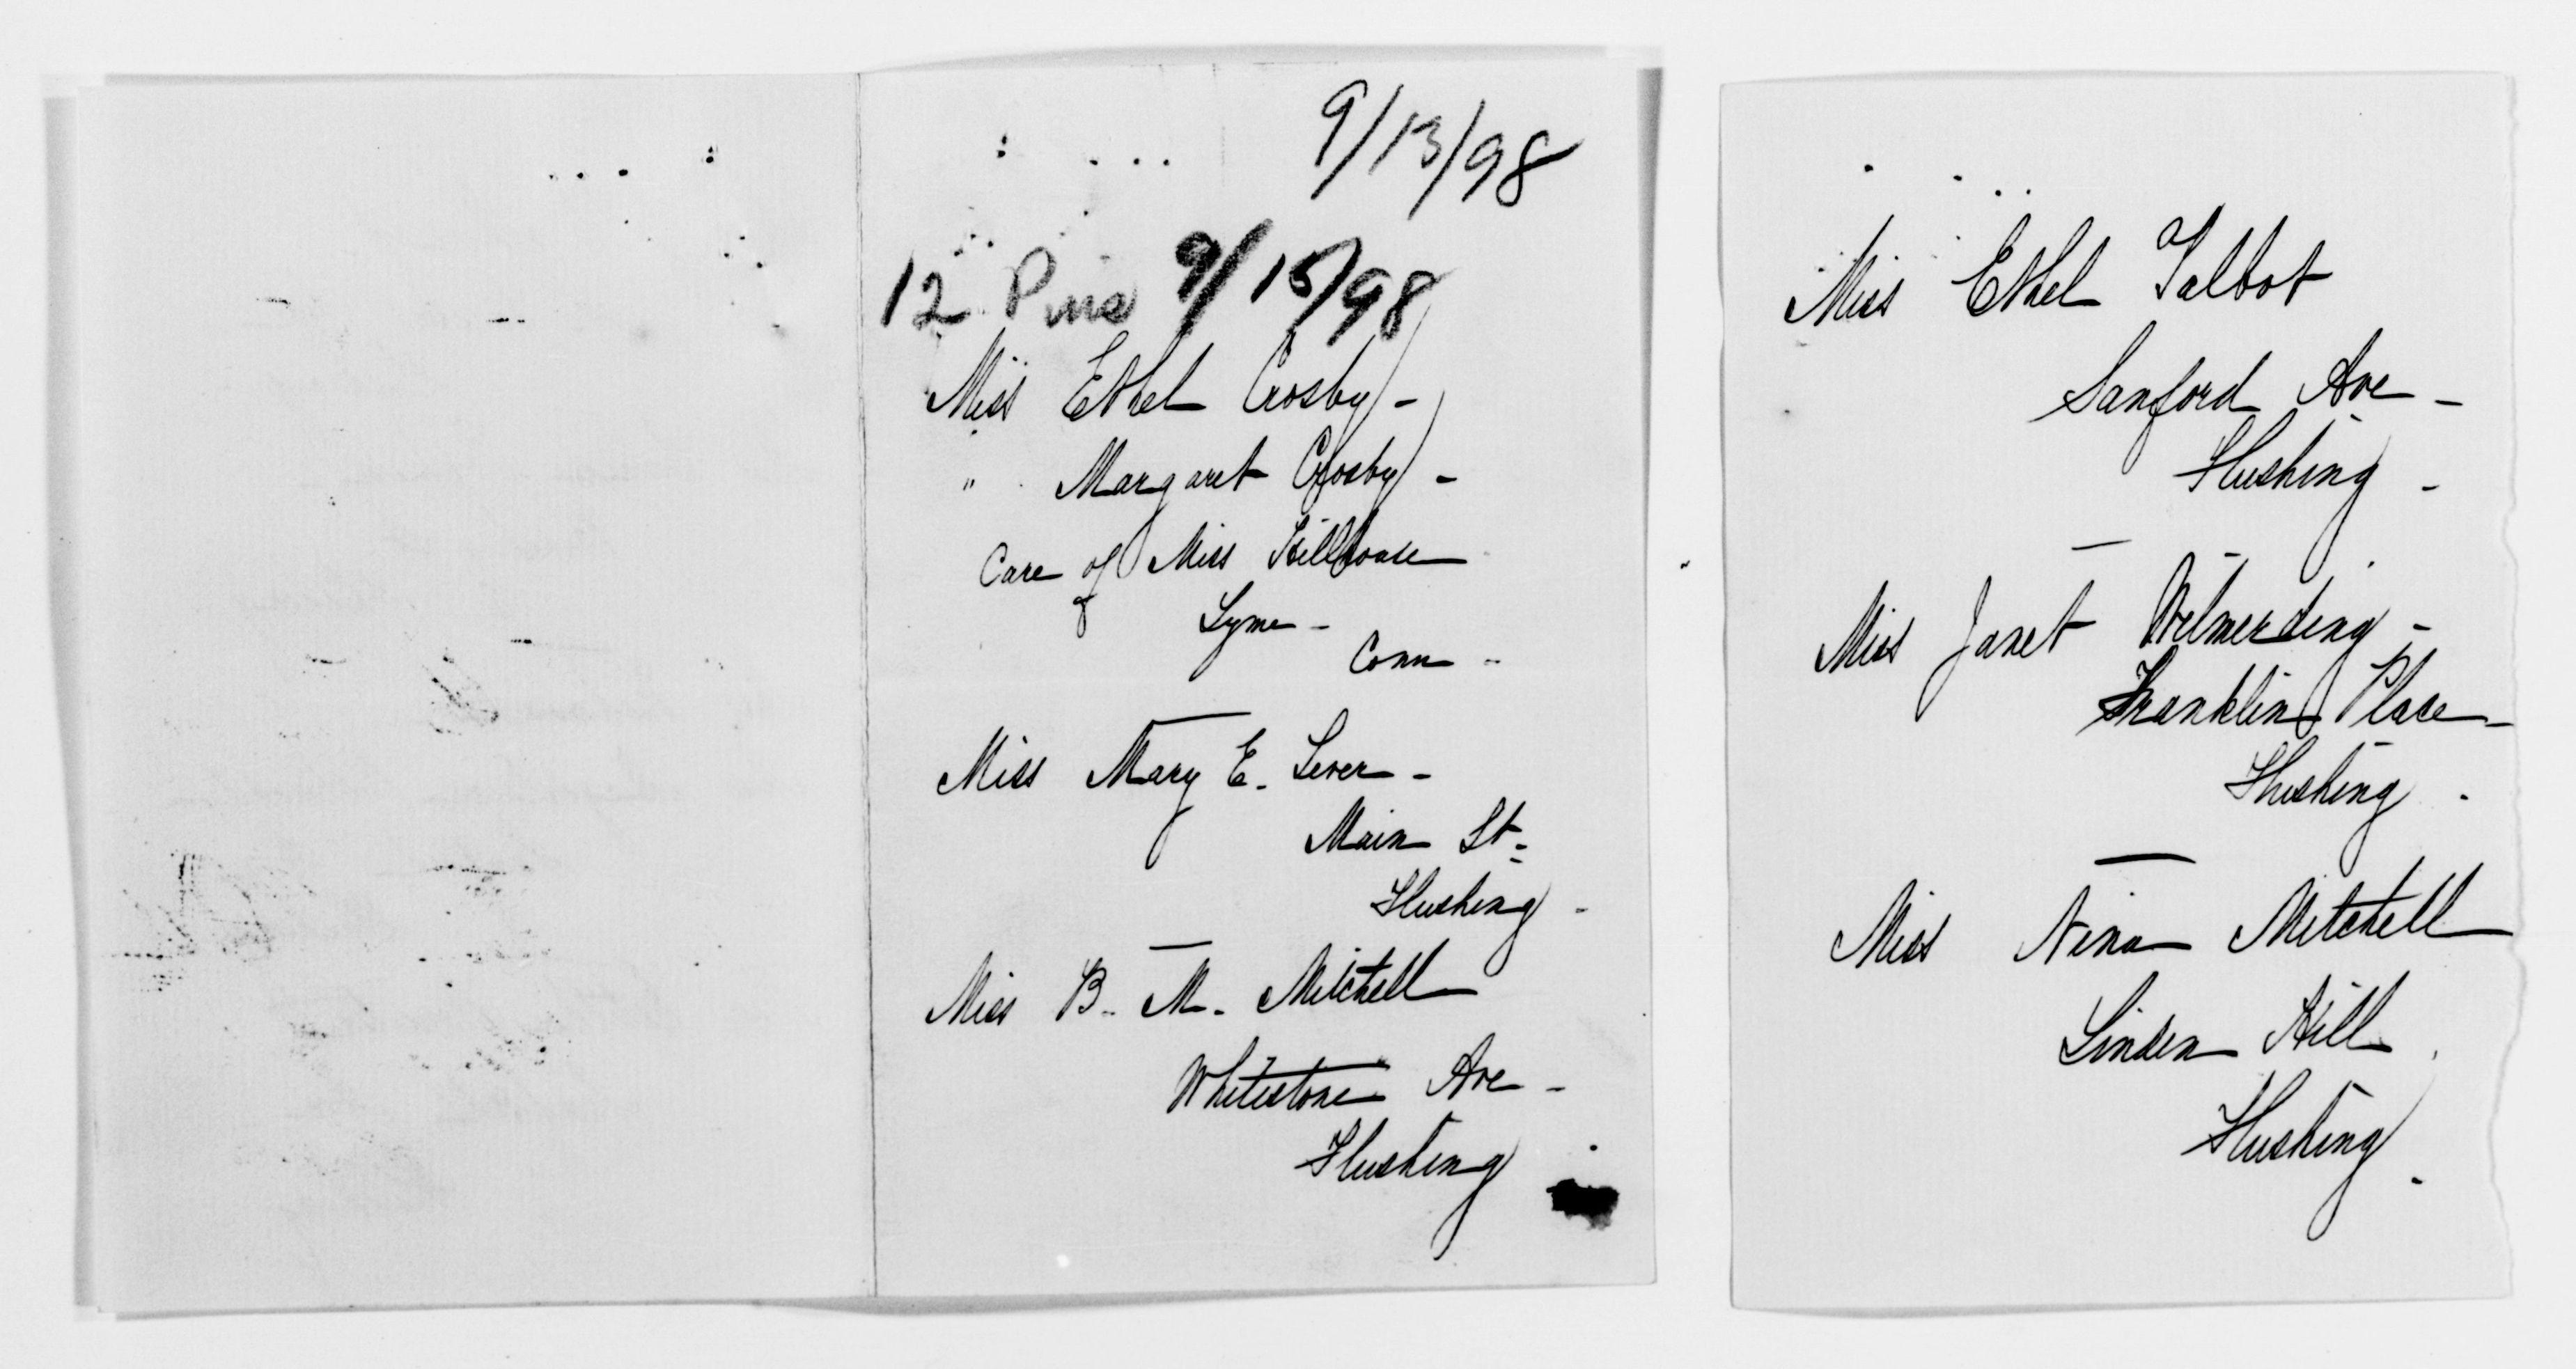 9/13/98
12 Pins 9/15/98
Miss Ethel Crosby -
" Margaret Crosby -
Care of Miss Hillhouse
Lyme -
Conn -
Miss Mary E. Lever -
Main St -
Flushing -
Miss B. M. Mitchell
Whitestone Ave -
Flushing
Miss Ethel Talbot
Sanford Ave -
Flushing -
Miss Janet Wilmerding -
Franklin Place -
Flushing .
Miss Nina Mitchell
Linden Hill
Flushing .